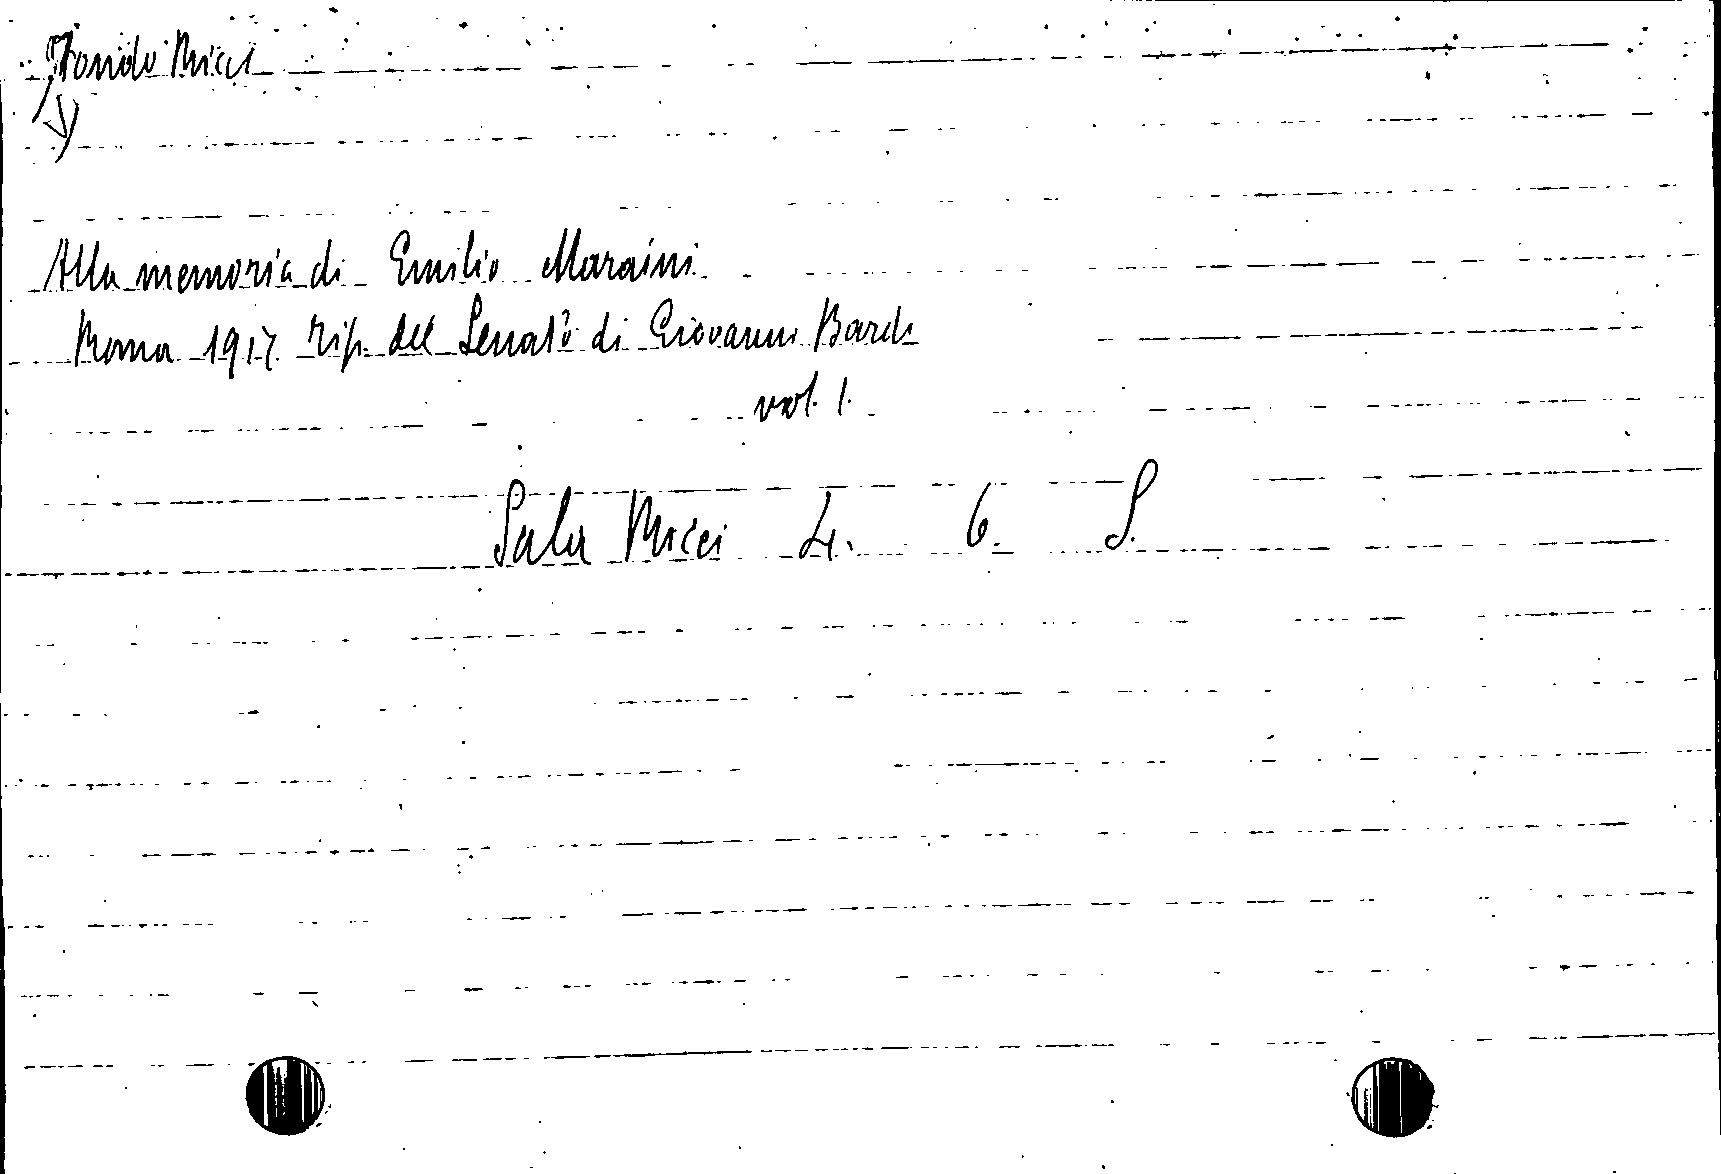 Fondo Ricci
Alla memoria di Emilio Maraini
Roma 1917 Tip. del Senato di Giovanni Bardi
vol. 1.
Sala Ricci 4. 6. S.